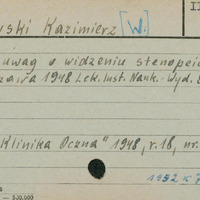 ski Kazimierz [W.]
uwag o widzeniu stenopei
zawa 1948 Lek. Inst. Nauk.-Wyd. 8
"Klinika Oczna" 1948, r.18, nr.
1952 K
— 530.000